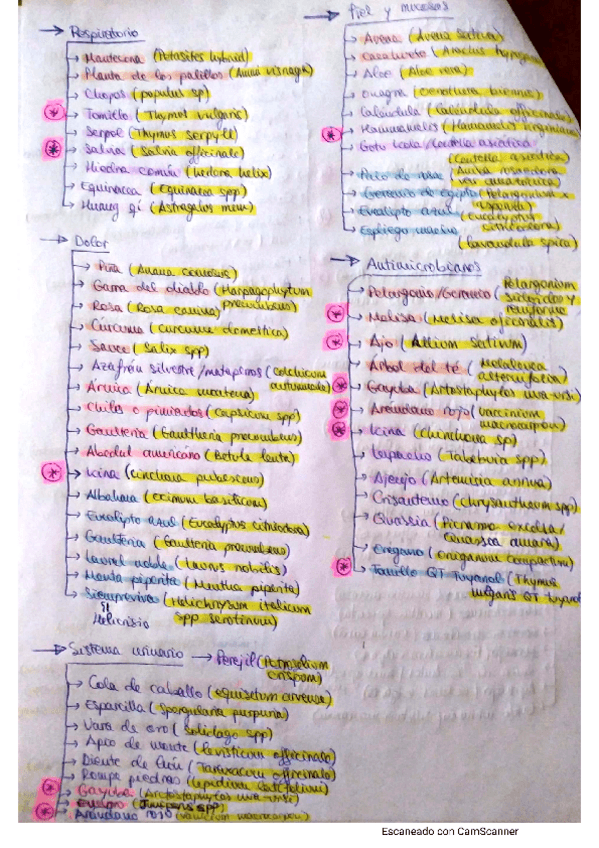 Respiratorio
Mantecona (Petasites hybrid)
Planta de los palillos (Ammi visnaga)
Chopos (populus sp)
Tomillo (Thymol vulgaric)
Serpol (Thymus serpyll)
Salvia (Salvia officinale)
Hiedra común (hedera helix)
Equinacea (equinacea spp)
Huang qi (Astragalus mem)
Dolor
Piña (Anana comosus)
Garra del diablo (Harpagophytum procumbens)
Rosa (Rosa canina)
Cúrcuma (curcuma domestica)
Sauce (Salix spp)
Azafrán silvestre/matapiros (colchicum autumnale)
Árnica (Arnica montena)
Chiles o pimientos (Capsicum spp)
Gaulteria (Gaultheria procumbens)
Abedul americano (Betula lenta)
Kina (cinchona pubescens)
Albahaca (ocimum basilicum)
Eucalipto azul (Eucalyptus citriodora)
Gaulteria (Gaulteria procumbens)
Laurel noble (Laurus nobilis)
Menta piperita (Mentha piperita)
Siempreviva (Helichrysum italicum
Helicrisio spp serotinum)
Sistema urinario → Perejil (Petroselium crispum)
Cola de caballo (equisetum arvense)
Esparcilla (spergularia purpuria)
Vara de oro (Solidago spp)
Apio de monte (levisticum officinale)
Diente de león (Taraxacum officinale)
Rompe piedras (lepidium latifolium)
Gayuba (Arctostaphylos uva-ursi)
Enebro (Juniperis spp)
Arándano rojo (vaccinium macrocarpon)
Piel y mucosas
Avena (Avena sativa)
Cacahuete (Arachis hypogaea)
Aloe (Aloe vera)
Onagra (Oenothera biennis)
Caléndula (Caléndula officinalis)
Hammamelis (Hamamelis virginiana)
Gotu kola/Centella asiática
(Centella asiatica)
Geranio de egipto (Pelargonium x
asperum)
Eucalipto azul (Eucalyptus
citriodora)
Espliego macho
(lavandula spica)
Antimicrobianos
Pelargonio/Geranio (Pelargonium
sidoides y
reniforme)
Melisa (Melissa officinalis)
Ajo (Allium sativum)
Árbol del té (Melaleuca
alternifolia)
Gayuba (Arctostaphylos uva-ursi)
Arándano rojo (vaccinium
macrocarpon)
Kina (chinchona sp)
Lapacho (Tabebuia spp)
Ajenjo (Artemisia annua)
Crisantemo (chrysanthemum spp)
Quassia (Picrasma excelsa/
Quassia amara)
Orégano (origanum compactum)
Tomillo QT tuyanol (Thymus
vulgaris QT tuyanol
Escaneado con CamScanner